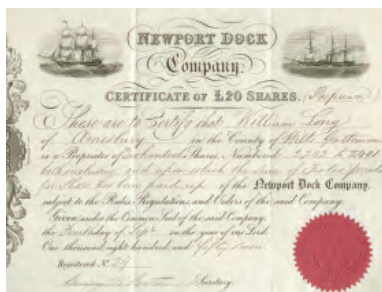 NEWPORT DOCK
Company.
CERTIFICATE OF £20 SHARES.
These are to Certify that William Long
of Amesbury in the County of Wilts Gentleman
is a Proprietor of Shares, Numbered
both inclusive and upon which the sum of pounds
per Share has been paid up of the Newport Dock Company,
subject to the Rules, Regulations, and Orders of the said Company.
Given under the Common Seal of the said Company
the day of Sept in the year of our Lord
One thousand eight hundred and fifty seven
Registered No. 29
Secretary.